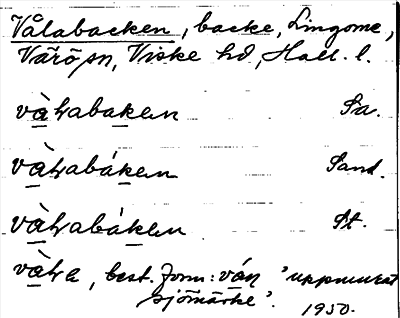 Vålabacken, backe, Lingome,
Värö sn, Viske hd, Hall. l.
vàɫrabaken Sa.
vàɫrabáken Sand.
vàɫrabáken St.
vàɫra, best. form: ván "uppmurat
sjömärke". 1950.